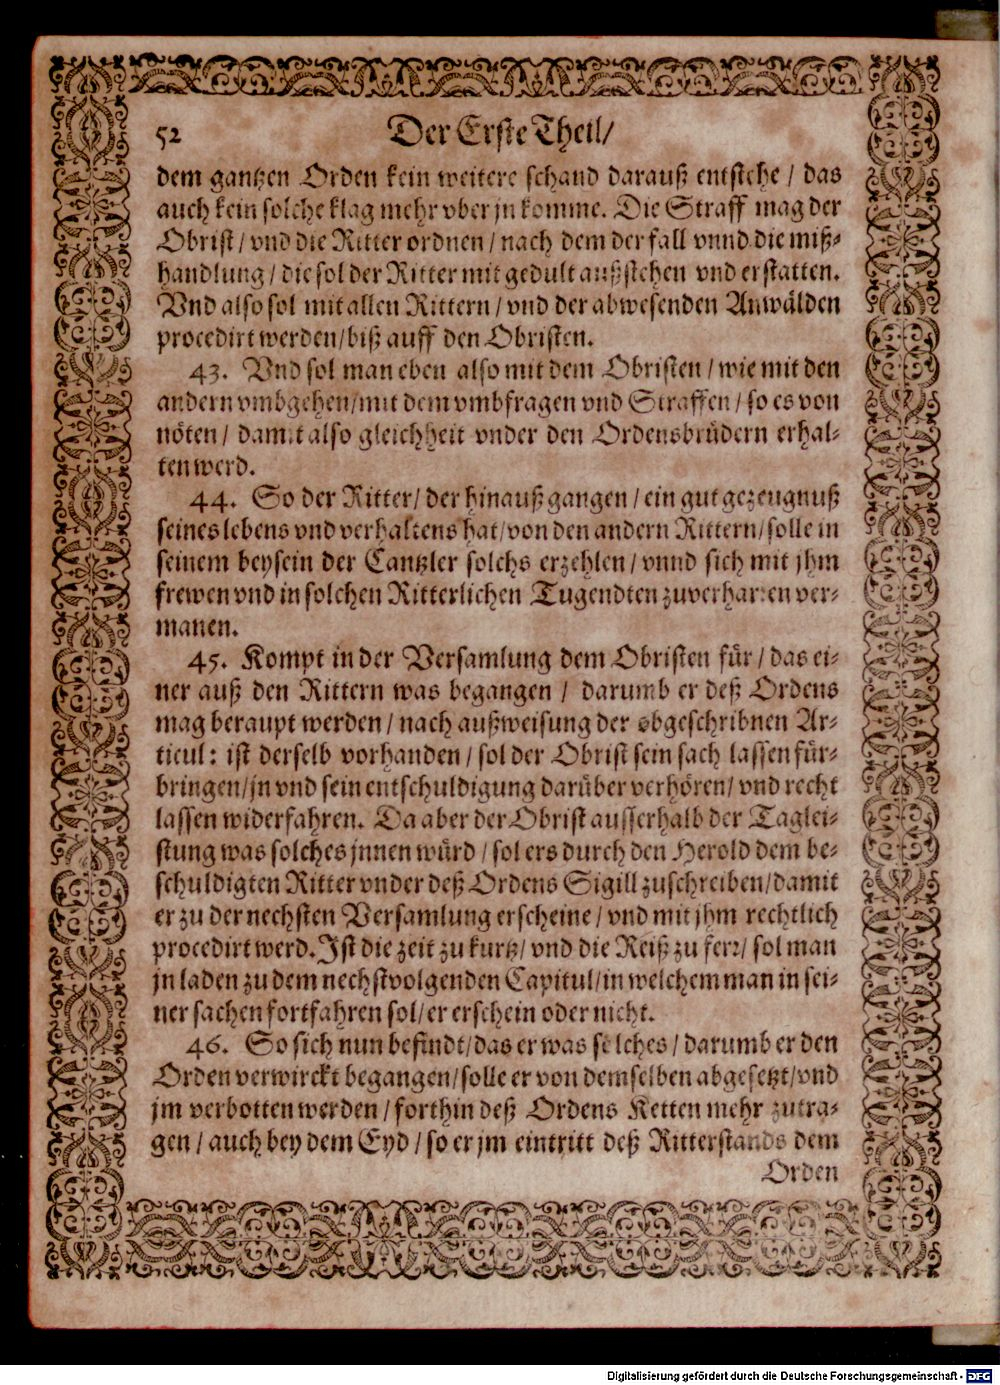 52 Der Erste Theil/
dem gantzen Orden kein weitere schand darauß entstehe / das
auch kein solche klag mehr vber jn komme. Die Straff mag der
Obrist / vnd die Ritter ordnen / nach dem der fall vnnd die miß-
handlung / die sol der Ritter mit gedult außstehen vnd erstatten.
Vnd also sol mit allen Rittern / vnd der abwesenden Anwälden
procedirt werden / biß auff den Obristen.
43. Vnd sol man eben also mit dem Obristen / wie mit den
andern vmbgehen / mit dem vmbfragen vnd Straffen / so es von
nöten / damit also gleichheit vnder den Ordensbrüdern erhal-
ten werd.
44. So der Ritter / der hinauß gangen / ein gut gezeugnuß
seines lebens vnd verhaltens hat / von den andern Rittern / solle in
seinem beysein der Cantzler solchs erzehlen / vnnd sich mit jhm
frewen vnd in solchen Ritterlichen Tugendten zuverharren ver-
manen.
45. Kompt in der Versamlung dem Obristen für / das ei-
ner auß den Rittern was begangen / darumb er deß Ordens
mag beraupt werden / nach außweisung der obgeschribnen Ar-
ticul: ist derselb vorhanden / sol der Obrist sein sach lassen für-
bringen / jn vnd sein entschuldigung darüber verhören / vnd recht
lassen widerfahren. Da aber der Obrist ausserhalb der Taglei-
stung was solches jnnen würd / sol ers durch den Herold dem be-
schuldigten Ritter vnder deß Ordens Sigill zuschreiben / damit
er zu der nechsten Versamlung erscheine / vnd mit jhm rechtlich
procedirt werd. Ist die zeit zu kurtz / vnd die Reiß zu ferr / sol man
jn laden zu dem nechstvolgenden Capitul / in welchem man in sei-
ner sachen fortfahren sol / er erschein oder nicht.
46. So sich nun befindt / das er was solches / darumb er den
Orden verwirckt begangen / solle er von demselben abgesetzt / vnd
jm verbotten werden / forthin deß Ordens Ketten mehr zutra-
gen / auch bey dem Eyd / so er jm eintritt deß Ritterstands dem
Orden
Digitalisierung gefördert durch die Deutsche Forschungsgemeinschaft - DFG